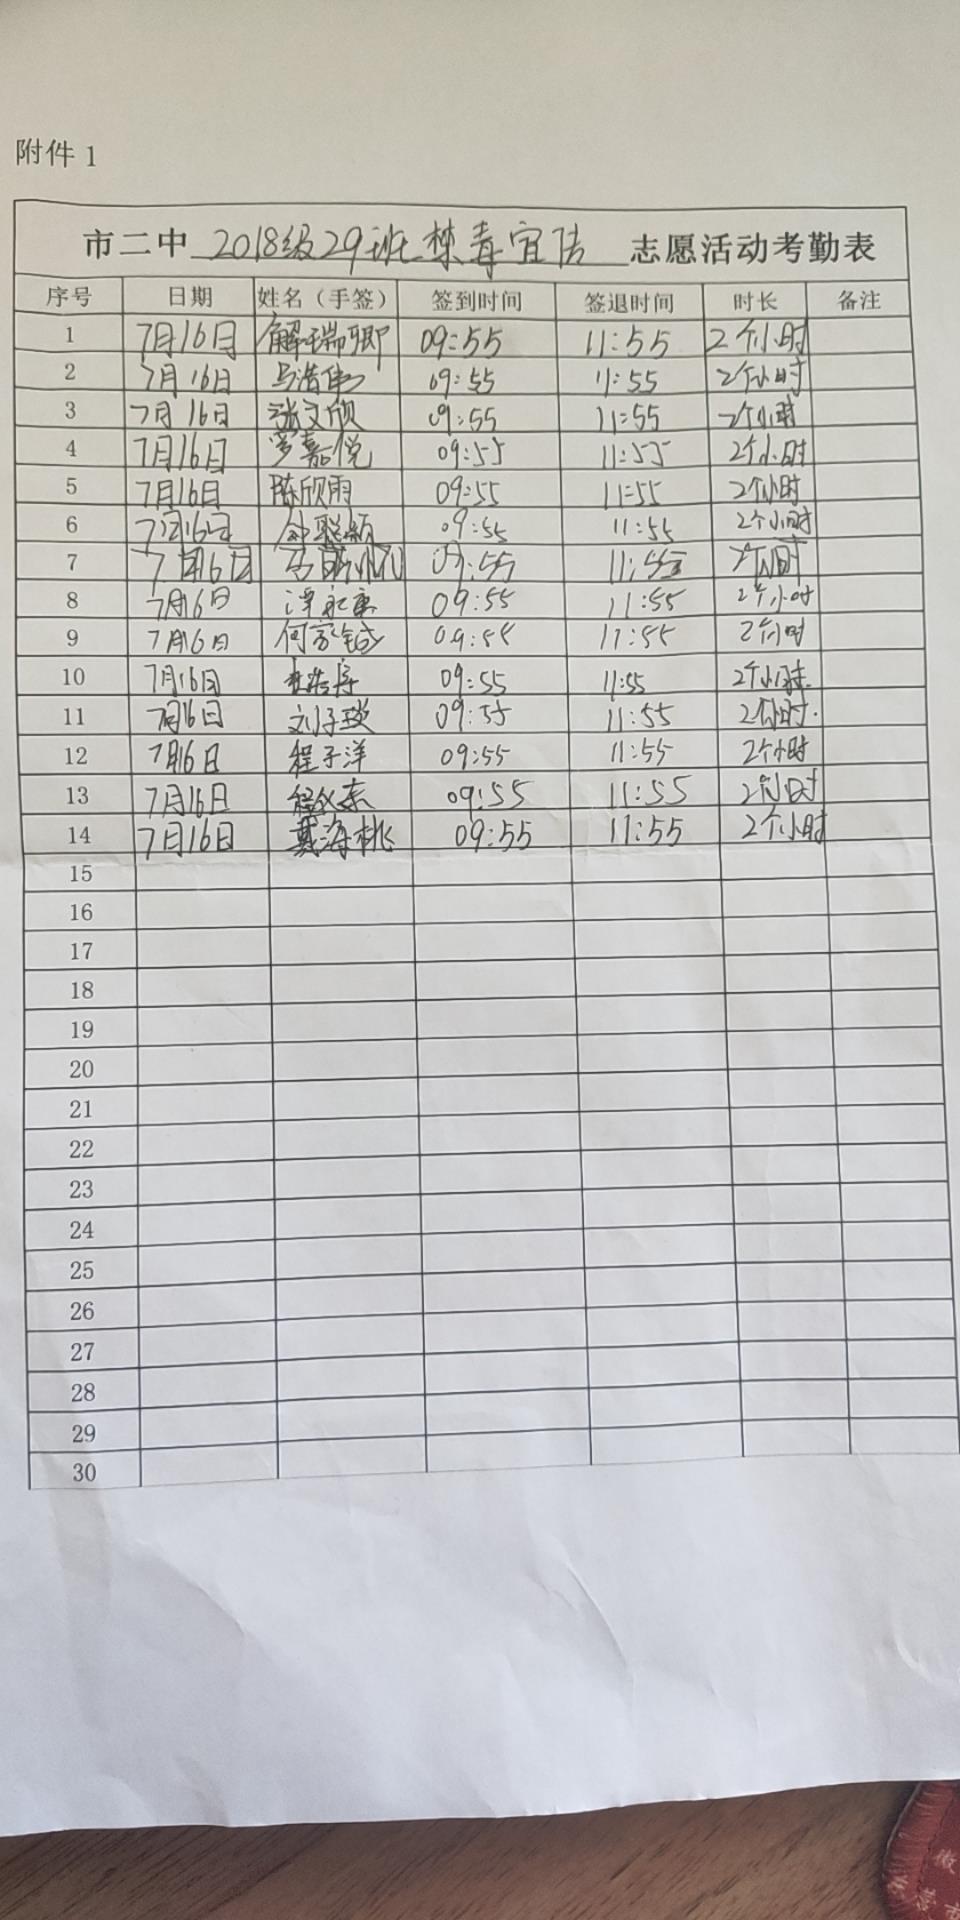 附件 1
市二中 2018级29班禁毒宣传 志愿活动考勤表
序号 日期 姓名（手签） 签到时间 签退时间 时长 备注
1 7月16日 解瑞卿 09:55 11:55 2个小时
2 7月16日 马浩伟 09:55 11:55 2个小时
3 7月16日 张文欣 09:55 11:55 2个小时
4 7月16日 罗嘉悦 09:55 11:55 2个小时
5 7月16日 陈欣雨 09:55 11:55 2个小时
6 7月16日 09:55 11:55 2个小时
7 7月16日 09:55 11:55 2个小时
8 7月16日 09:55 11:55 2个小时
9 7月16日 09:55 11:55 2个小时
10 7月16日 杜浩宇 09:55 11:55 2个小时.
11 7月16日 刘子琰 09:55 11:55 2个小时.
12 7月16日 程子洋 09:55 11:55 2个小时
13 7月16日 09:55 11:55 2个小时
14 7月16日 戴海桃 09:55 11:55 2个小时
15
16
17
18
19
20
21
22
23
24
25
26
27
28
29
30